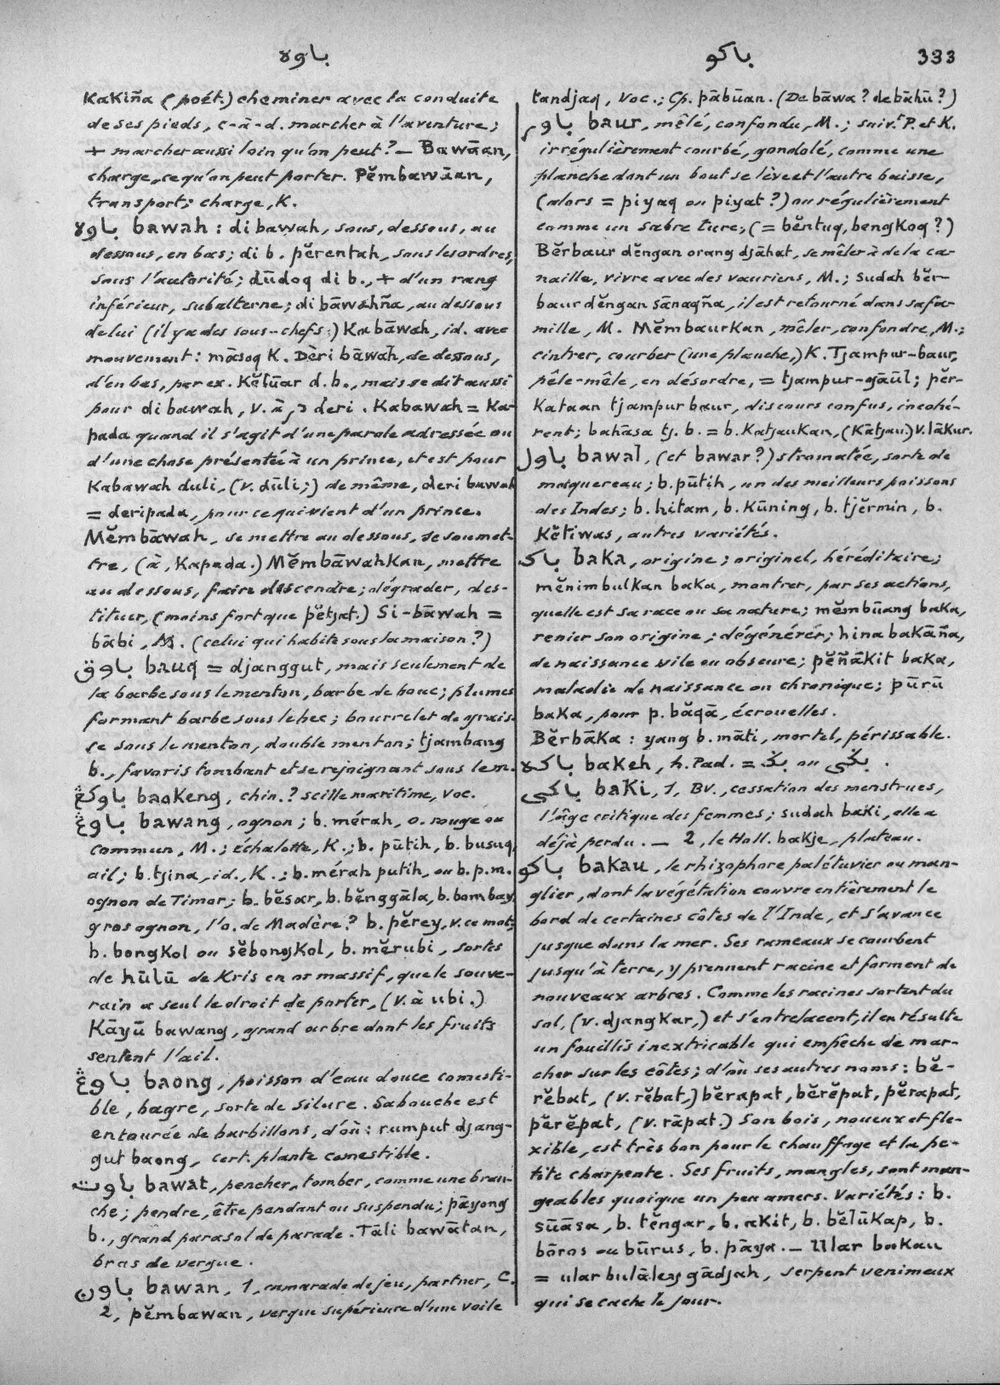 باوه
باكو
333
Kakiña (poét.) cheminer avec la conduite
de ses pieds, c-à-d. marcher à l'aventure;
+ marcher aussi loin qu'on peut? — Bawāan,
charge, ce qu'on peut porter. Pĕmbawāan,
transport; charge, K.
باوه bawah : di bawah, sous, dessous, au
dessous, en bas; di b. pĕrentah, sous les ordres,
sous l'autorité; dūdoq di b., + d'un rang
inférieur, subalterne; di bāwahña, au dessous
de lui (il y a des sous-chefs;) Kabāwah, id. avec
mouvement: māsoq K. Dèri bāwah, de dessous,
d'en bas, par ex. Kĕlūar d. b., mais se dit aussi
pour di bawah, v. à, deri. Kabawah = Ka-
pada quand il s'agit d'une parole adressée ou
d'une chose présentée à un prince, et est pour
Kabawah duli, (v. dūli;) de même, deri bawah
= deripada, pour ce qui vient d'un prince.
Mĕmbāwah, se mettre au dessous, se soumet-
tre, (à, Kapada.) Mĕmbāwahkan, mettre
au dessous, faire descendre; dégrader, des-
tituer, (moins fort que pĕtjat.) Si-bāwah =
bābi, M. (celui qui habite sous la maison?)
باوق bauq = djanggut, mais seulement de
la barbe sous le menton, barbe de bouc; plumes
formant barbe sous le bec; bourrelet de grais-
se sous le menton, double menton; tjambang
b., favoris tombant et se rejoignant sous le m.
باوكڠ baokeng, chin.? scille maritime, voc.
باوڠ bawang, ognon; b. mérah, o. rouge ou
commun, M.; échalotte, K.; b. pūtih, b. busuq,
ail; b. tjina, id., K.; b. mérah putih, ou b. p. m.
ognon de Timor; b. bĕsar, b. bĕnggāla, b. bombay,
gros ognon, l'o. de Madère? b. pĕrey, v. ce mot;
b. bongkol ou sĕbongkol, b. mĕrubi, sortes
de hūlū de Kris en or massif, que le souve-
rain a seul le droit de porter, (v. à ubi.)
Kāyū bawang, grand arbre dont les fruits
sentent l'ail.
باوڠ baong, poisson d'eau douce comesti-
ble, bagre, sorte de silure. Sa bouche est
entourée de barbillons, d'où: rumput djang-
gut baong, cert. plante comestible.
باوت bawat, pencher, tomber, comme une bran-
che; pendre, être pendant ou suspendu; pāyong
b., grand parasol de parade. Tāli bawātan,
bras de vergue.
باون bawan, 1, camarade de jeu, partner, C.
2, pĕmbawan, vergue supérieure d'une voile
tandjaq, voc.; Cp. pābūan. (De bāwa? de bāhū?)
باور baur, mêlé, confondu, M.; suivt P. et K.
irrégulièrement courbé, gondolé, comme une
planche dont un bout se lève et l'autre baisse,
(alors = piyaq ou piyat?) ou régulièrement
comme un sabre turc, (= bĕntuq, bengkoq?)
Bĕrbaur dĕngan orang djāhat, se mêler à de la ca-
naille, vivre avec des vauriens, M.; sudah bĕr-
baur dĕngan sānaqña, il est retourné dans sa fa-
mille, M. Mĕmbaurkan, mêler, confondre, M.;
cintrer, courber (une planche,) K. Tjampur-baur,
pêle-mêle, en désordre, = tjampur-gāūl; pĕr-
Kataan tjampur baur, discours confus, incohé-
rent; bahāsa tj. b. = b. Katjaukan, (Kātjau) v. lākur.
باول bawal, (et bawar?) stromatée, sorte de
maquereau; b. pūtih, un des meilleurs poissons
des Indes; b. hitam, b. Kūning, b. tjĕrmin, b.
Kĕtiwas, autres variétés.
باك baka, origine; originel, héréditaire;
mĕnimbulkan baka, montrer, par ses actions,
quelle est sa race ou sa nature; mĕmbūang baka,
renier son origine; dégénérér; hina bakāña,
de naissance vile ou obscure; pĕñākit baka,
maladie de naissance ou chronique; pūrū
baka, pour p. bāqā, écrouelles.
Bĕrbāka: yang b. māti, mortel, périssable.
باكه bakeh, h. Pad. = بڬ ou بڬي .
باكي baki, 1, BV., cessation des menstrues,
l'âge critique des femmes; sudah baki, elle a
déjà perdu. — 2, le Holl. bakje, plateau.
باكو bakau, le rhizophore palétuvier ou man-
glier, dont la végétation couvre entièrement le
bord de certaines côtes de l'Inde, et s'avance
jusque dans la mer. Ses rameaux se courbent
jusqu'à terre, y prennent racine et forment de
nouveaux arbres. Comme les racines sortent du
sol, (v. djangkar,) et s'entrelacent, il en résulte
un fouillis inextricable qui empêche de mar-
cher sur les côtes; d'où ses autres noms: bĕ-
rĕbat, (v. rĕbat,) bĕrapat, bĕrĕpat, pĕrapat,
pĕrĕpat, (v. rāpat.) Son bois, noueux et fle-
xible, est très bon pour le chauffage et la pe-
tite charpente. Ses fruits, mangles, sont man-
geables quoique un peu amers. Variétés: b.
sūāsa, b. tĕngar, b. akit, b. bĕlūkap, b.
bōros ou būrus, b. pāya. — Ular bakau
= ular bulāley gādjah, serpent venimeux
qui se cache le jour.